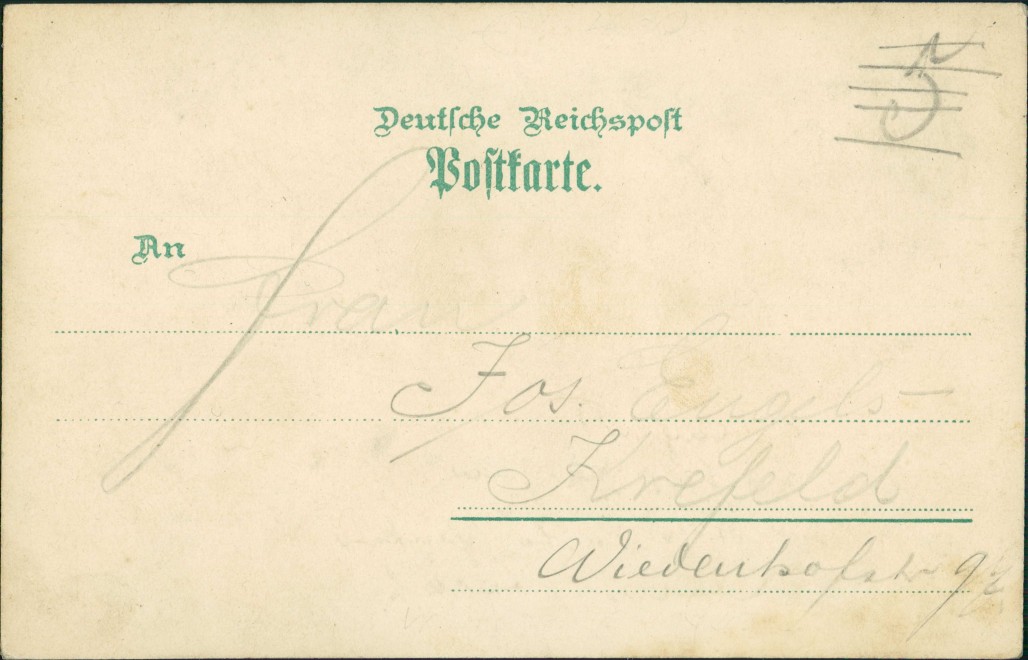 5
Deutsche Reichspost
Postkarte.
An
Frau
Jos. Engels-
Krefeld
Wiedenhofstr 92